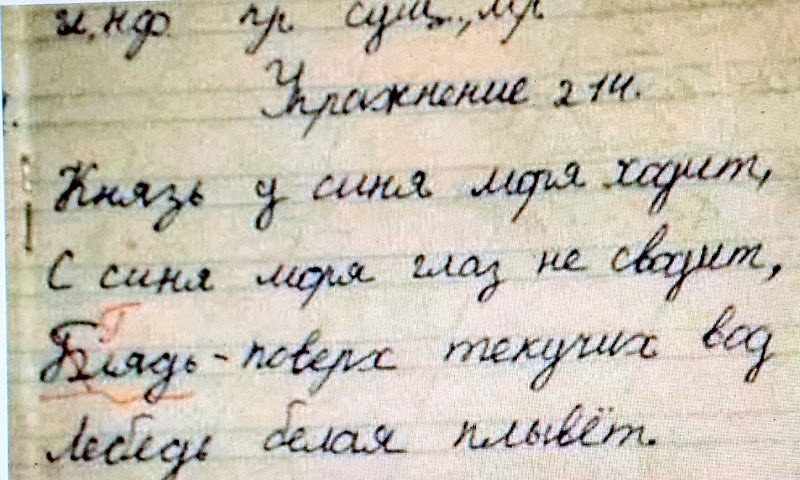 гл. сущ., мр
Упражнение 214.
Князь у синя моря ходит,
С синя моря глаз не сводит,
Г
Блядь - поверх текучих вод
Лебедь белая плывёт.